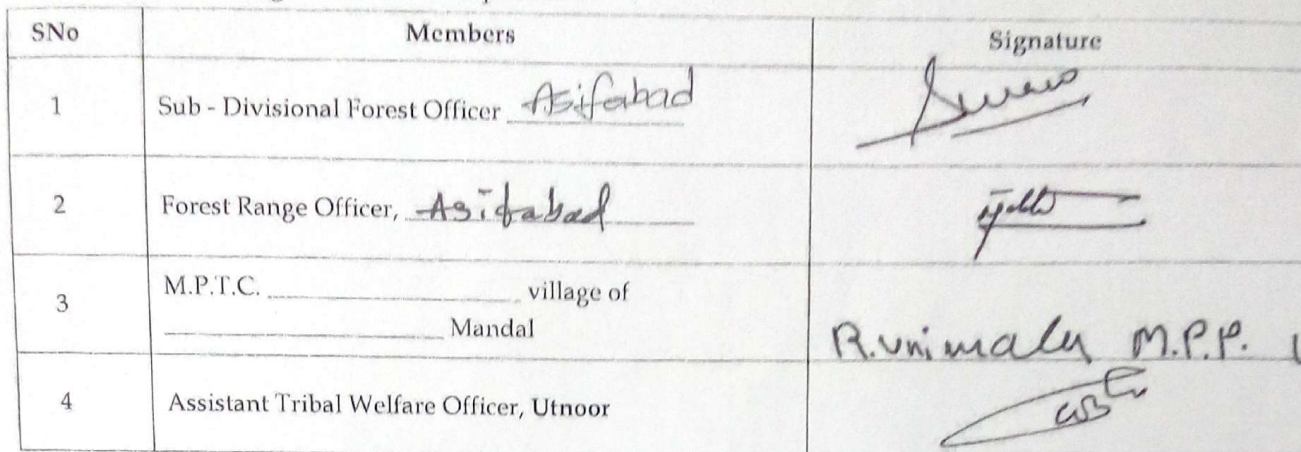 SNo Members Signature
1 Sub - Divisional Forest Officer Asifabad
2 Forest Range Officer, Asifabad
3 M.P.T.C. ____________ village of
____________ Mandal
R. M.P.P.
4 Assistant Tribal Welfare Officer, Utnoor